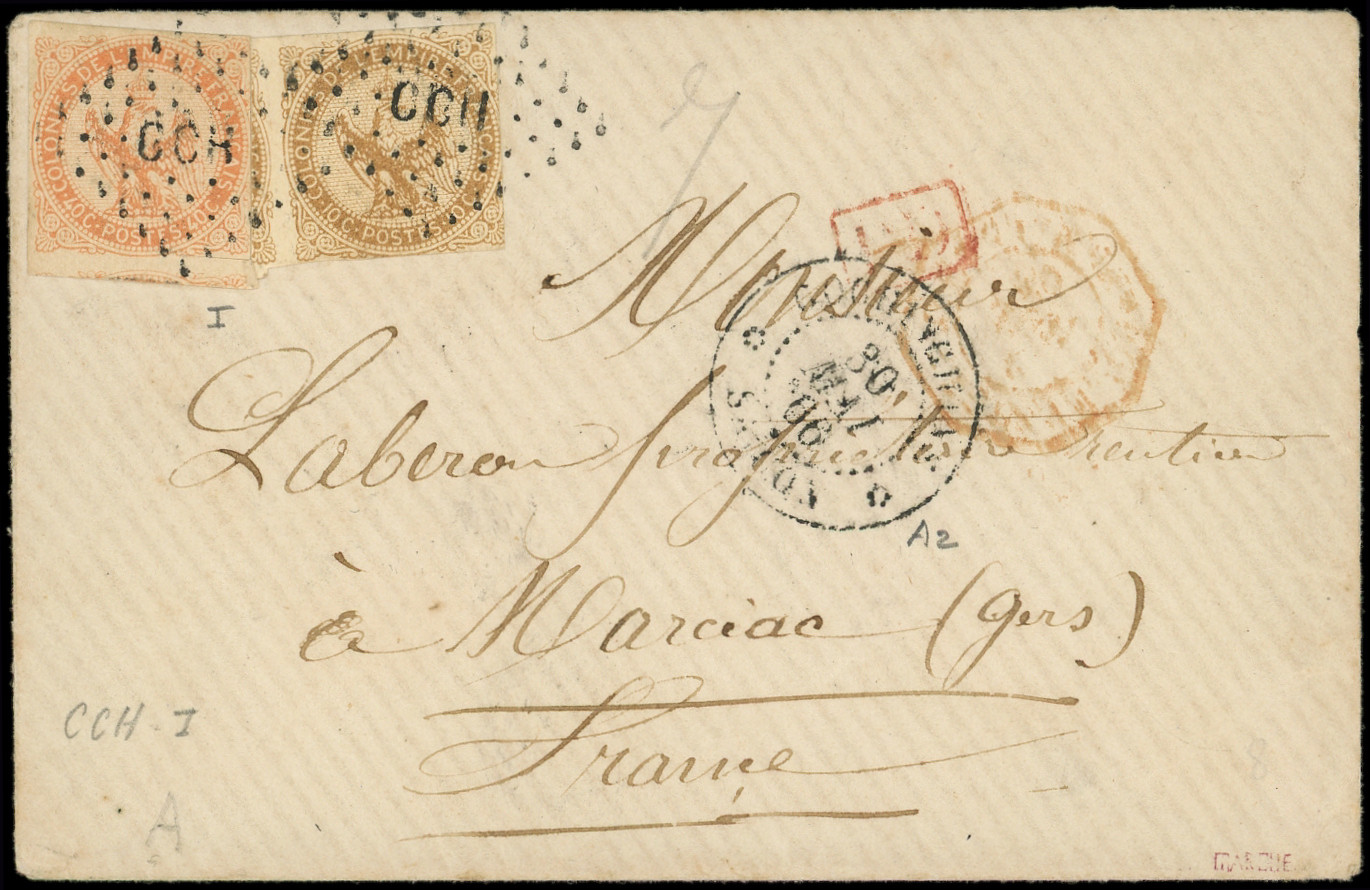 COLONIES DE L'EMPIRE FRANÇAIS
40 C. POSTES 40 C.
CCH
COLONIES DE L'EMPIRE FRANÇAIS
10 C. POSTES 10 C.
CCH
I
Monsieur
Laberon propriétaire rentier
à Marciac (gers)
France
30
MAI
A2
CCH - I
A
8